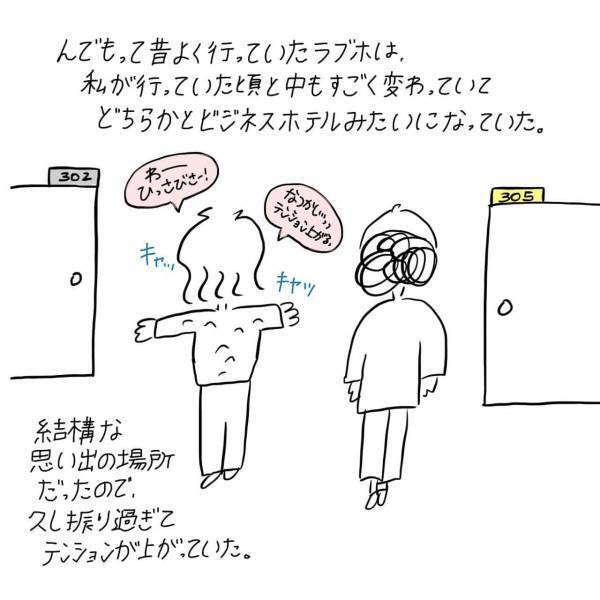 んでもって昔よく行っていたラブホは、
私が行っていた頃と中もすごく変わっていて
どちらかとビジネスホテルみたいになっていた。
302
305
わーー
ひっさびさー!
なつかしいっっ
テンション上がる。
キャッ
キャッ
結構な
思い出の場所
だったので、
久し振り過ぎて
テンションが上がっていた。